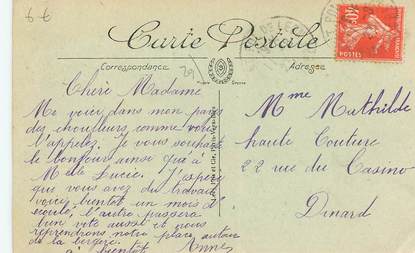 6 €
Carte Postale
Correspondance
Adresse
Chère Madame
Me voici dans mon pays
des chouffleurs comme vous
l'appelez. Je vous souhaite
le bonjour ainsi qu'à
Melle Lucie. J'espère
que vous avez du travail
voici bientôt un mois d'
écoulé, l'autre passera
bien vite aussi et nous
reprendrons notre place autour
de la
à bientôt
Mme Mathilde
haute Couture
22 rue du Casino
Dinard
POSTES